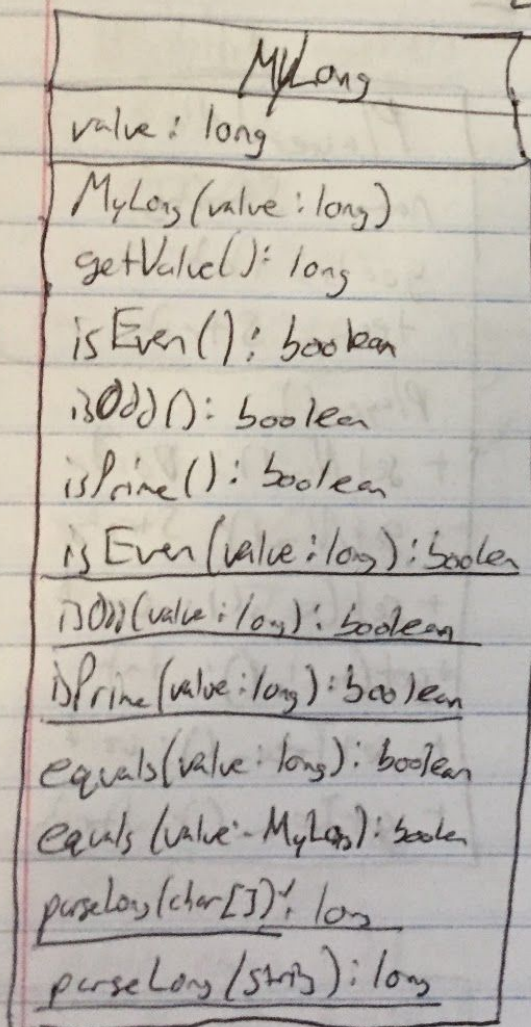 MyLong
value: long
MyLong(value: long)
getValue(): long
isEven(): boolean
isOdd(): boolean
isPrime(): boolean
isEven(value: long): boolen
isOdd(value: long): boolean
isPrime(value: long): boolean
equals(value: long): boolean
equals(value: MyLong): boolen
parseLong(char[]): long
parseLong(string): long